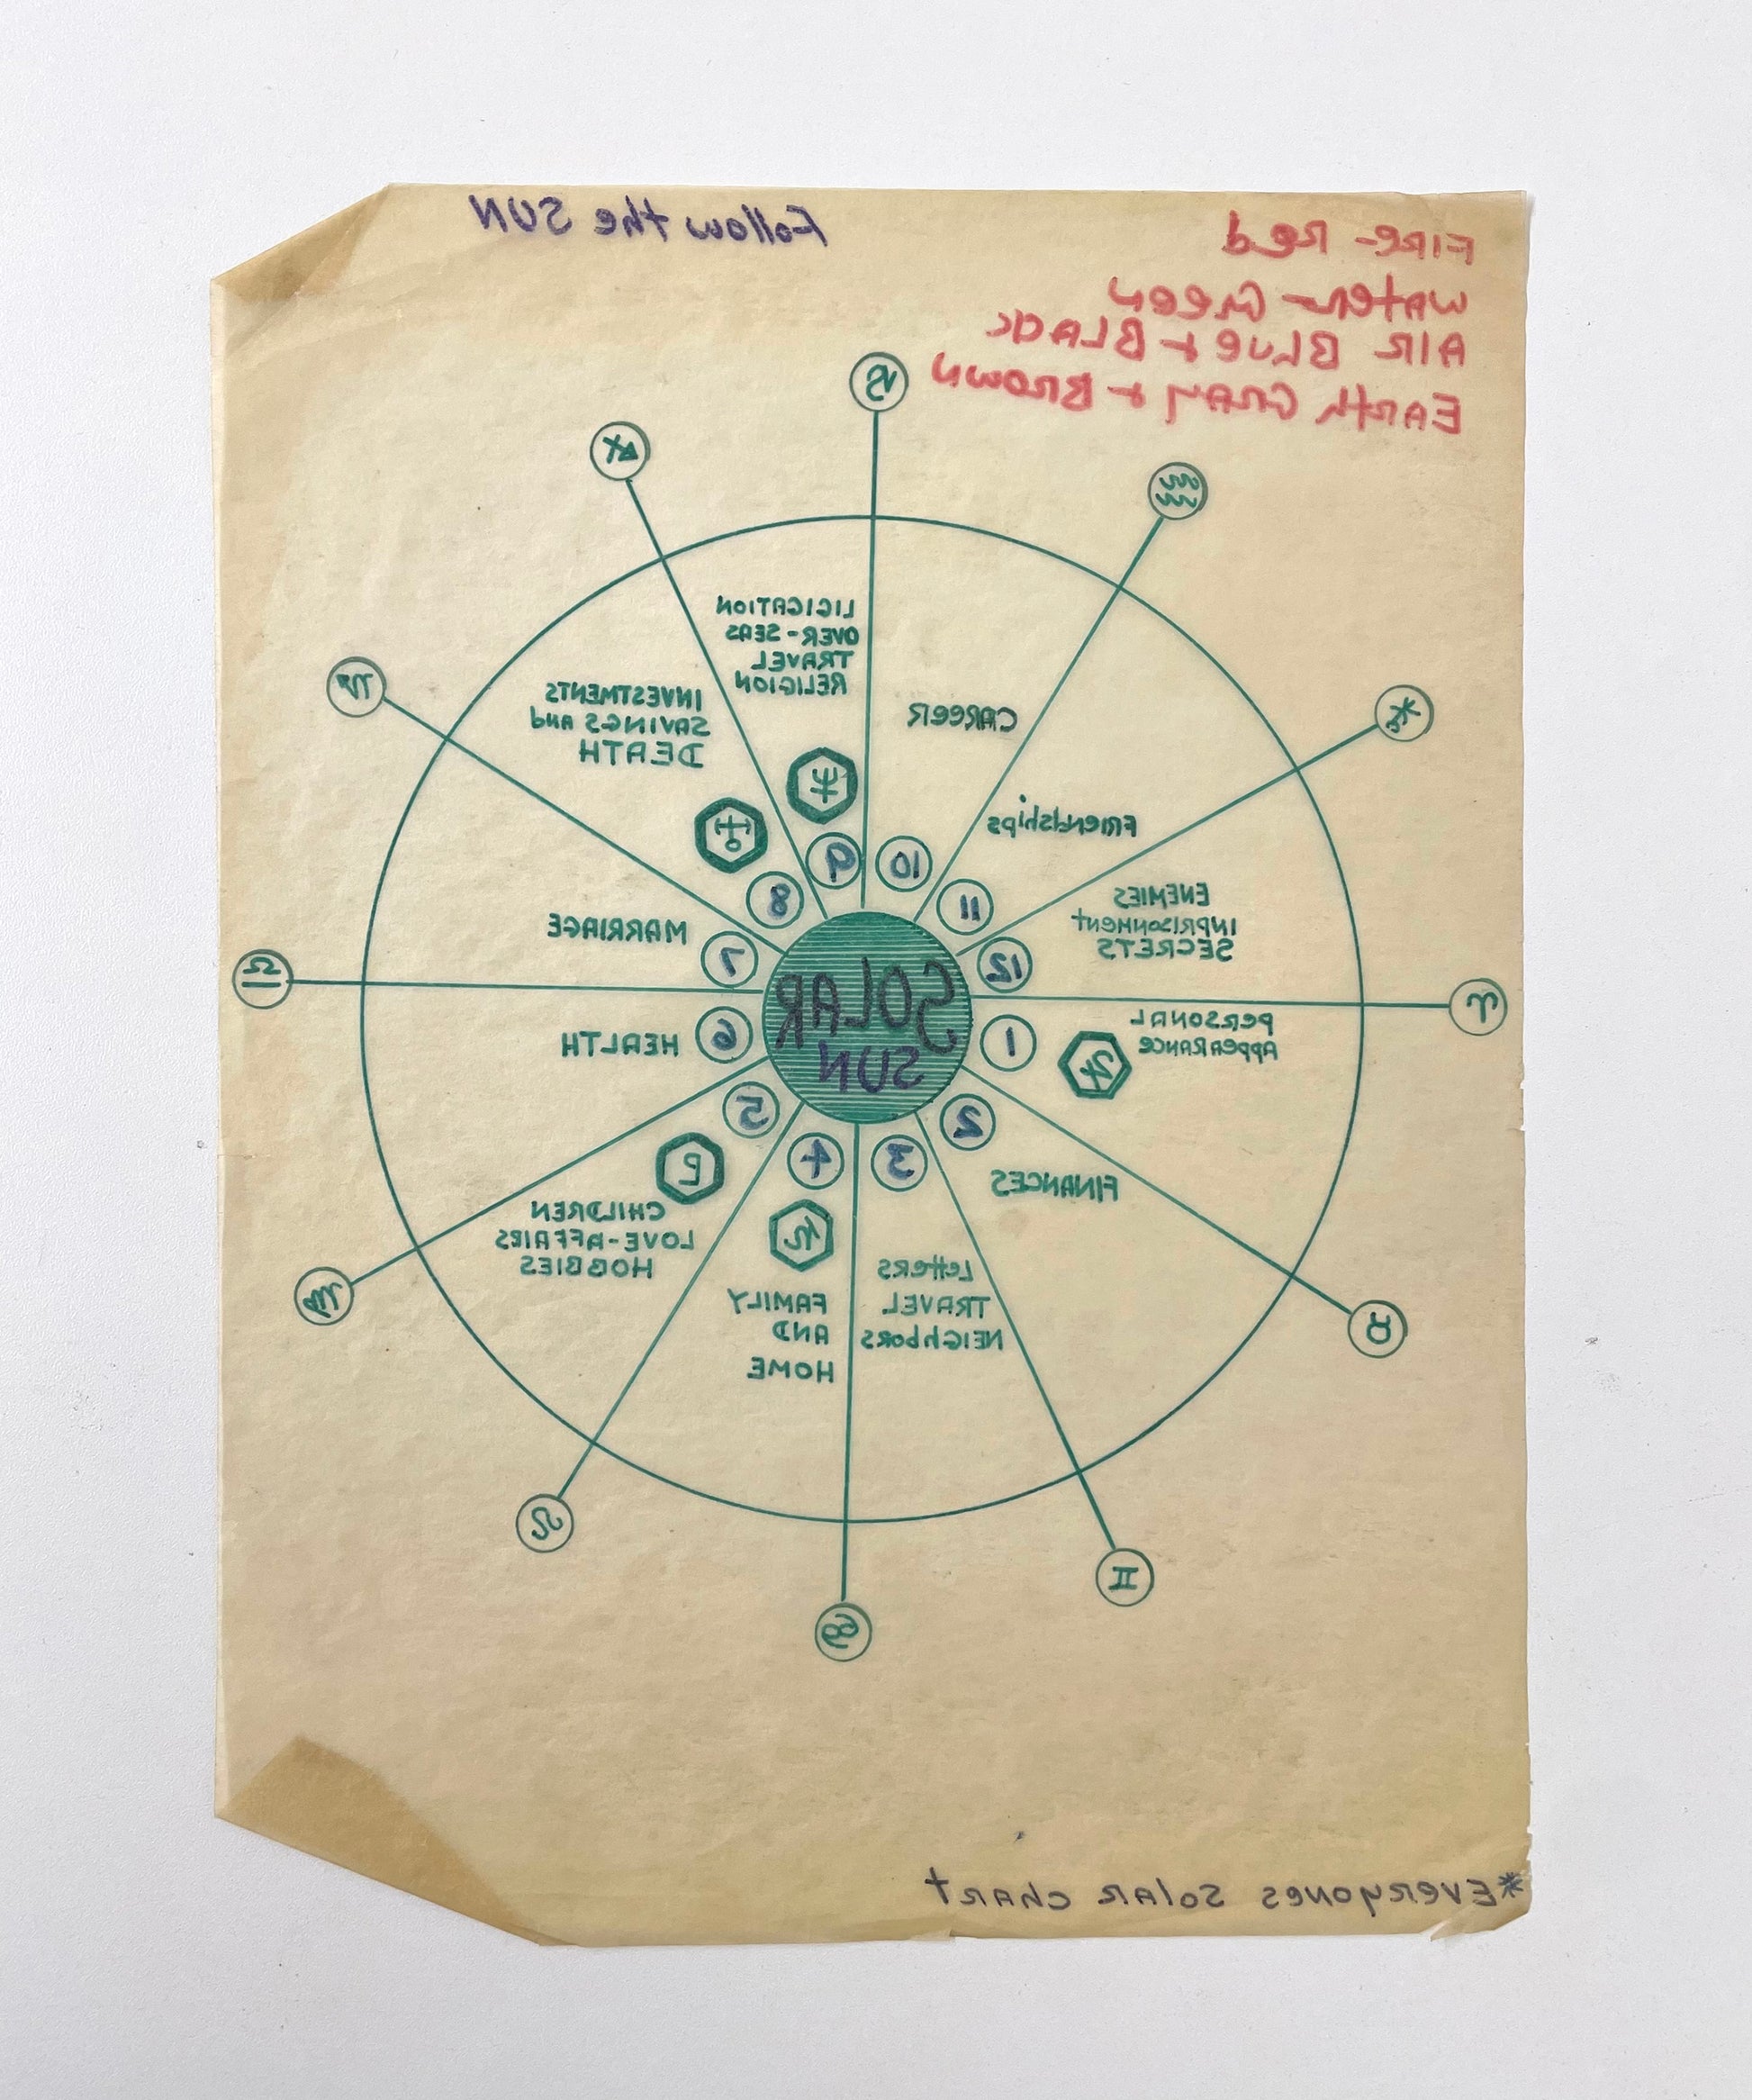 Follow the SUN
FIRE - Red
WATER - Green
AIR BLUE + BLACK
EARTH GRAY + BROWN
LIGIGATION
OVER-SEAS
TRAVEL
RELIGION
INVESTMENTS
SAVINGS and
DEATH
CAREER
FRIENDSHIPS
ENEMIES
INPRISONMENT
SECRETS
MARRIAGE
9
10
8
11
7
12
SOLAR
SUN
PERSONAL
APPEARANCE
HEALTH
6
1
5
2
4
3
FINANCES
CHILDREN
LOVE-AFFAIRS
HOBBIES
FAMILY
AND
HOME
LETTERS
TRAVEL
NEIGHBORS
*EVERYONES SOLAR CHART